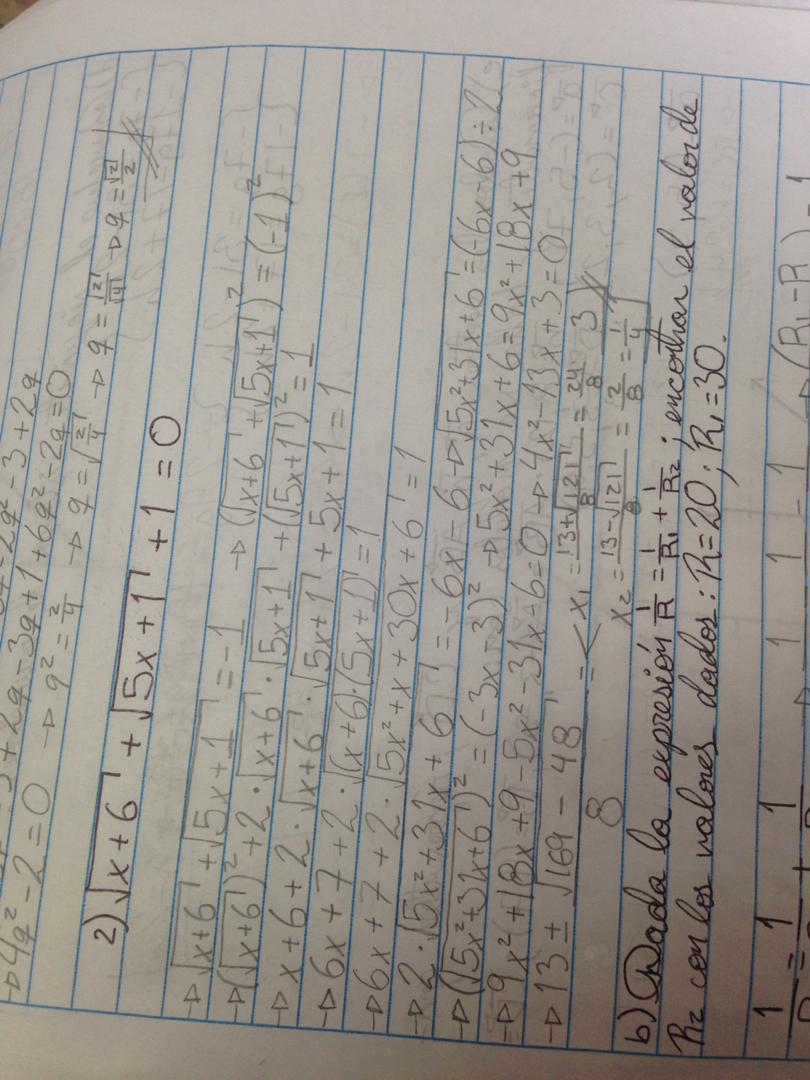 → 4q² - 2 = 0 → q² = 2/4 → q = √2/4 → q = √2/√4 → q = √2/2
2) √x+6 + √5x+1 + 1 = 0
→ √x+6 + √5x+1 = -1 → (√x+6 + √5x+1)² = (-1)²
→ (√x+6)² + 2·√x+6·√5x+1 + (√5x+1)² = 1
→ x+6+2·√x+6·√5x+1 + 5x+1 = 1
→ 6x+7+2·√(x+6)·(5x+1) = 1
→ 6x+7+2·√5x²+x+30x+6 = 1
→ 2·√5x²+31x+6 = -6x-6 → √5x²+31x+6 = (-6x-6)÷2
→ (√5x²+31x+6)² = (-3x-3)² → 5x²+31x+6 = 9x²+18x+9
→ 9x²+18x+9-5x²-31x-6=0 → 4x²-13x+3=0
→ 13 ± √169-48 / 8 = < x₁ = 13+√121 / 8 = 24/8 3
x₂ = 13-√121 / 8 = 2/8 = 1/4
b) Dada la expresión 1/R = 1/R₁ + 1/R₂; encontrar el valor de
R₂ con los valores dados: R=20; R₁=30.